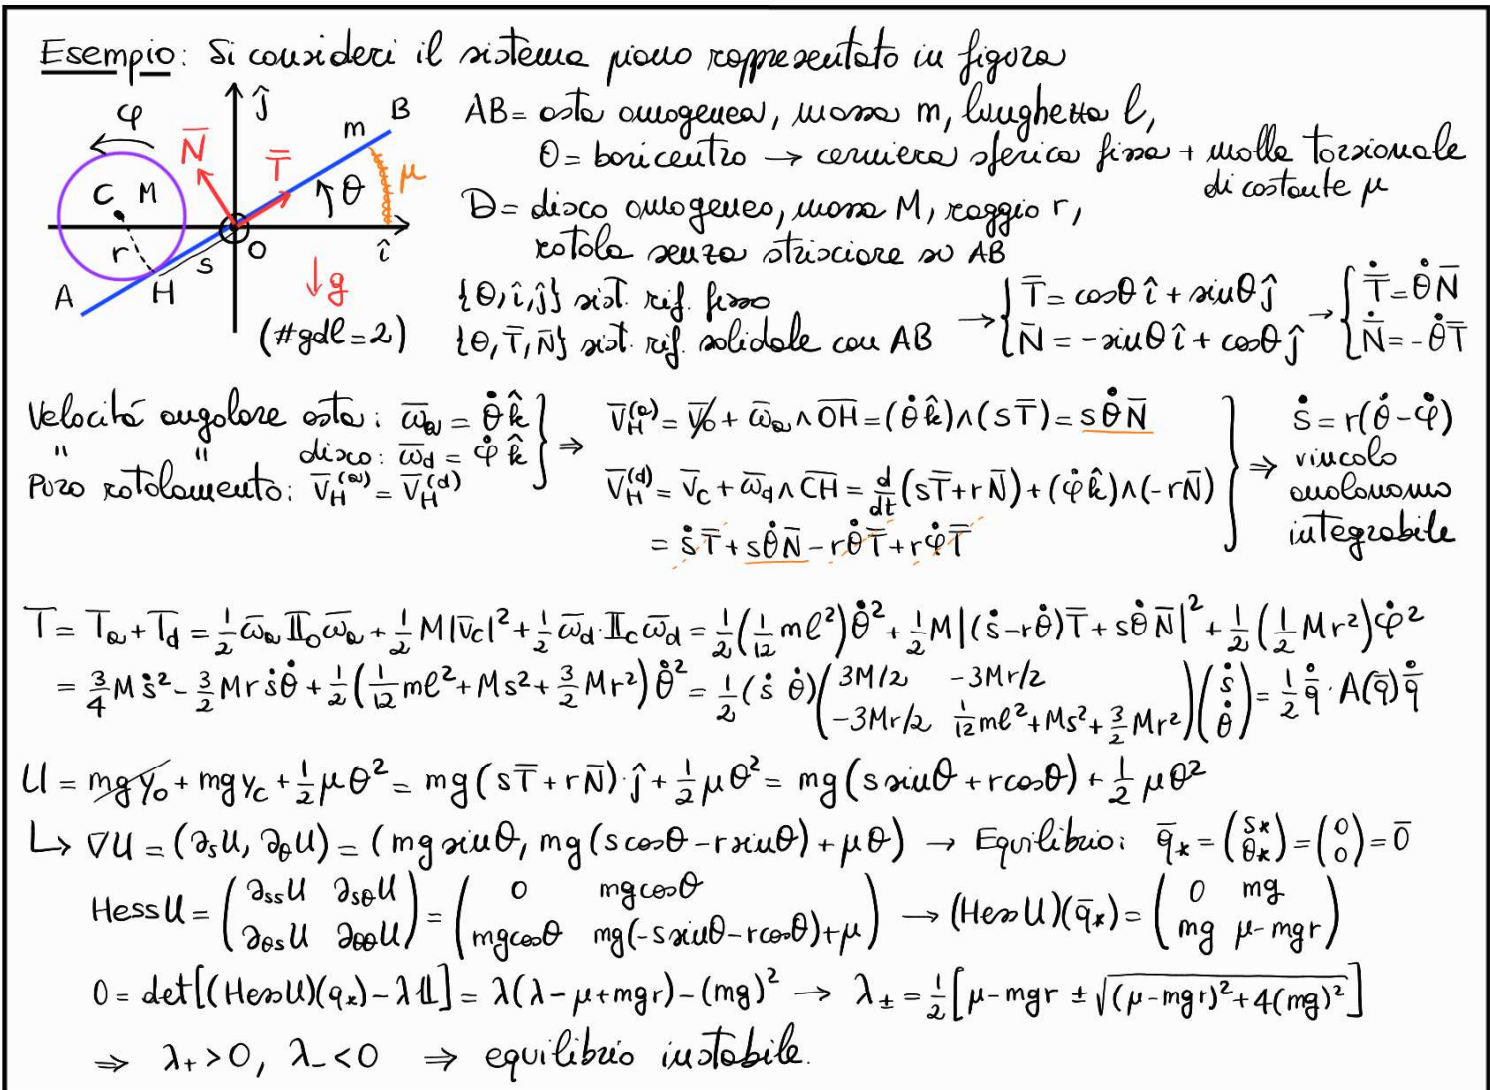 Esempio: Si consideri il sistema piano rappresentato in figura
φ ĵ B
N̄ T̄ m μ
C M θ
r s O î
A H ↓g
(#gdl=2)
AB = asta omogenea, massa m, lunghezza l,
O = baricentro → cerniera sferica fissa + molla torsionale
di costante μ
D = disco omogeneo, massa M, raggio r,
rotola senza strisciare su AB
{O,î,ĵ} sist. rif. fisso
{O,T̄,N̄} sist. rif. solidale con AB → { T̄ = cosθ î + sinθ ĵ → { Ṫ̄ = θ̇ N̄
N̄ = -sinθ î + cosθ ĵ Ṅ̄ = -θ̇ T̄
Velocità angolare asta: ω̄ₐ = θ̇ k̂
" " disco: ω̄_d = φ̇ k̂
Puro rotolamento: v̄_H^(a) = v̄_H^(d)
⇒ v̄_H^(a) = v̄_O + ω̄ₐ ∧ OH = (θ̇ k̂) ∧ (s T̄) = s θ̇ N̄
v̄_H^(d) = v̄_C + ω̄_d ∧ CH = d/dt (s T̄ + r N̄) + (φ̇ k̂) ∧ (-r N̄)
= ṡ T̄ + s θ̇ N̄ - r θ̇ T̄ + r φ̇ T̄
⇒ ṡ = r(θ̇ - φ̇)
vincolo
anolonomo
integrabile
T = Tₐ + T_d = 1/2 ω̄ₐ·𝕀_O ω̄ₐ + 1/2 M|v̄_C|² + 1/2 ω̄_d·𝕀_C ω̄_d = 1/2 (1/12 ml²) θ̇² + 1/2 M|(ṡ - rθ̇)T̄ + sθ̇ N̄|² + 1/2 (1/2 Mr²) φ̇²
= 3/4 M ṡ² - 3/2 M r ṡ θ̇ + 1/2 (1/12 ml² + Ms² + 3/2 Mr²) θ̇² = 1/2 (ṡ θ̇) (3M/2 -3Mr/2
-3Mr/2 1/12 ml² + Ms² + 3/2 Mr²) (ṡ
θ̇) = 1/2 q̄̇ · A(q̄) q̄̇
U = mg y_O + mg y_C + 1/2 μθ² = mg (s T̄ + r N̄)·ĵ + 1/2 μθ² = mg (s sinθ + r cosθ) + 1/2 μθ²
↳ ∇U = (∂ₛU, ∂_θU) = (mg sinθ, mg(s cosθ - r sinθ) + μθ) → Equilibrio: q̄* = (s*
θ*) = (0
0) = 0̄
Hess U = (∂ₛₛU ∂_sθU
∂_θsU ∂_θθU) = (0 mg cosθ
mg cosθ mg(-s sinθ - r cosθ) + μ) → (Hess U)(q̄*) = (0 mg
mg μ - mgr)
0 = det[(Hess U)(q*) - λ𝟙] = λ(λ - μ + mgr) - (mg)² → λ± = 1/2 [μ - mgr ± √((μ - mgr)² + 4(mg)²)]
⇒ λ+ > 0, λ- < 0 ⇒ equilibrio instabile.